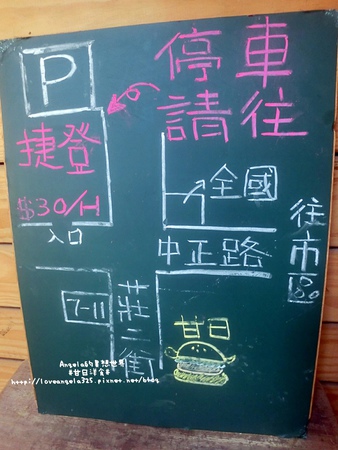 停車
請往
P
捷登
$30/H
入口
全國
中正路
往市區
7-11
莊二街
甘日
Angela的夢想世界
#甘日洋食#
http://loveangela325.pixnet.net/blog